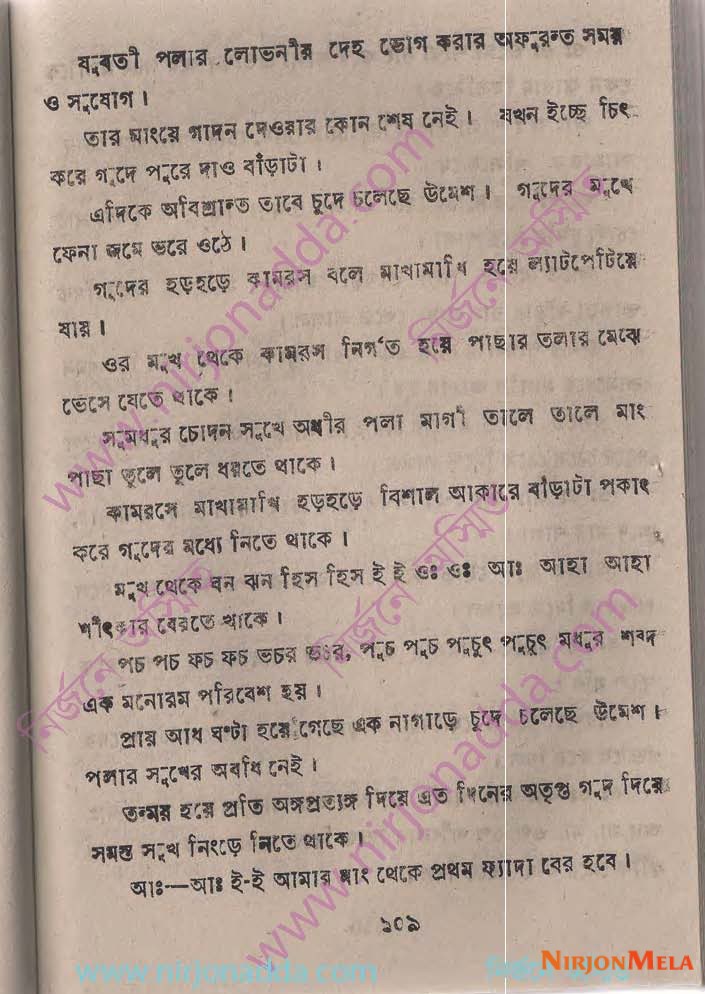 যুবতী পলার লোভনীয় দেহ ভোগ করার অফুরন্ত সময়
ও সুযোগ।
তার মাংয়ে গাদন দেওয়ার কোন শেষ নেই। যখন ইচ্ছে চিৎ
করে গুদে পুরে দাও বাঁড়াটা।
এদিকে অবিশ্রান্ত ভাবে চুদে চলেছে উমেশ। গুদের মুখে
ফেনা জমে ভরে ওঠে।
গুদের হড়হড়ে কামরস বলে মাখামাখি হয়ে ল্যাটপেটিয়ে
যায়।
ওর মুখ থেকে কামরস নির্গত হয়ে পাছার তলার মেঝে
ভেসে যেতে থাকে।
সুমধুর চোদন সুখে অধীর পলা মাগী তালে তালে মাং
পাছা তুলে তুলে ধরতে থাকে।
কামরসে মাখামাখি হড়হড়ে বিশাল আকারে বাঁড়াটা পকাৎ
করে গুদের মধ্যে নিতে থাকে।
মুখ থেকে ঘন ঝন হিস হিস ই ই ওঃ ওঃ আঃ আহা আহা
শীৎকার বেরতে থাকে।
পচ পচ ফচ ফচ ভচর ভচর, পুচ পুচ পুচুৎ পুচুৎ মধুর শব্দ
এক মনোরম পরিবেশ হয়।
প্রায় আধ ঘণ্টা হয়ে গেছে এক নাগাড়ে চুদে চলেছে উমেশ।
পলার সুখের অবধি নেই।
তন্ময় হয়ে প্রতি অঙ্গপ্রত্যঙ্গ দিয়ে এত দিনের অতৃপ্ত গুদ দিয়ে
সমস্ত সুখ নিংড়ে নিতে থাকে।
আঃ—আঃ ই-ই আমার মাং থেকে প্রথম ফ্যাদা বের হবে।
১০৯
www.nirjonadda.com
নির্জনে অস্মিত
www.nirjonadda.com
নির্জনে অস্মিত
নির্জনে অস্মিত
www.nirjonadda.com
NIRJONMELA